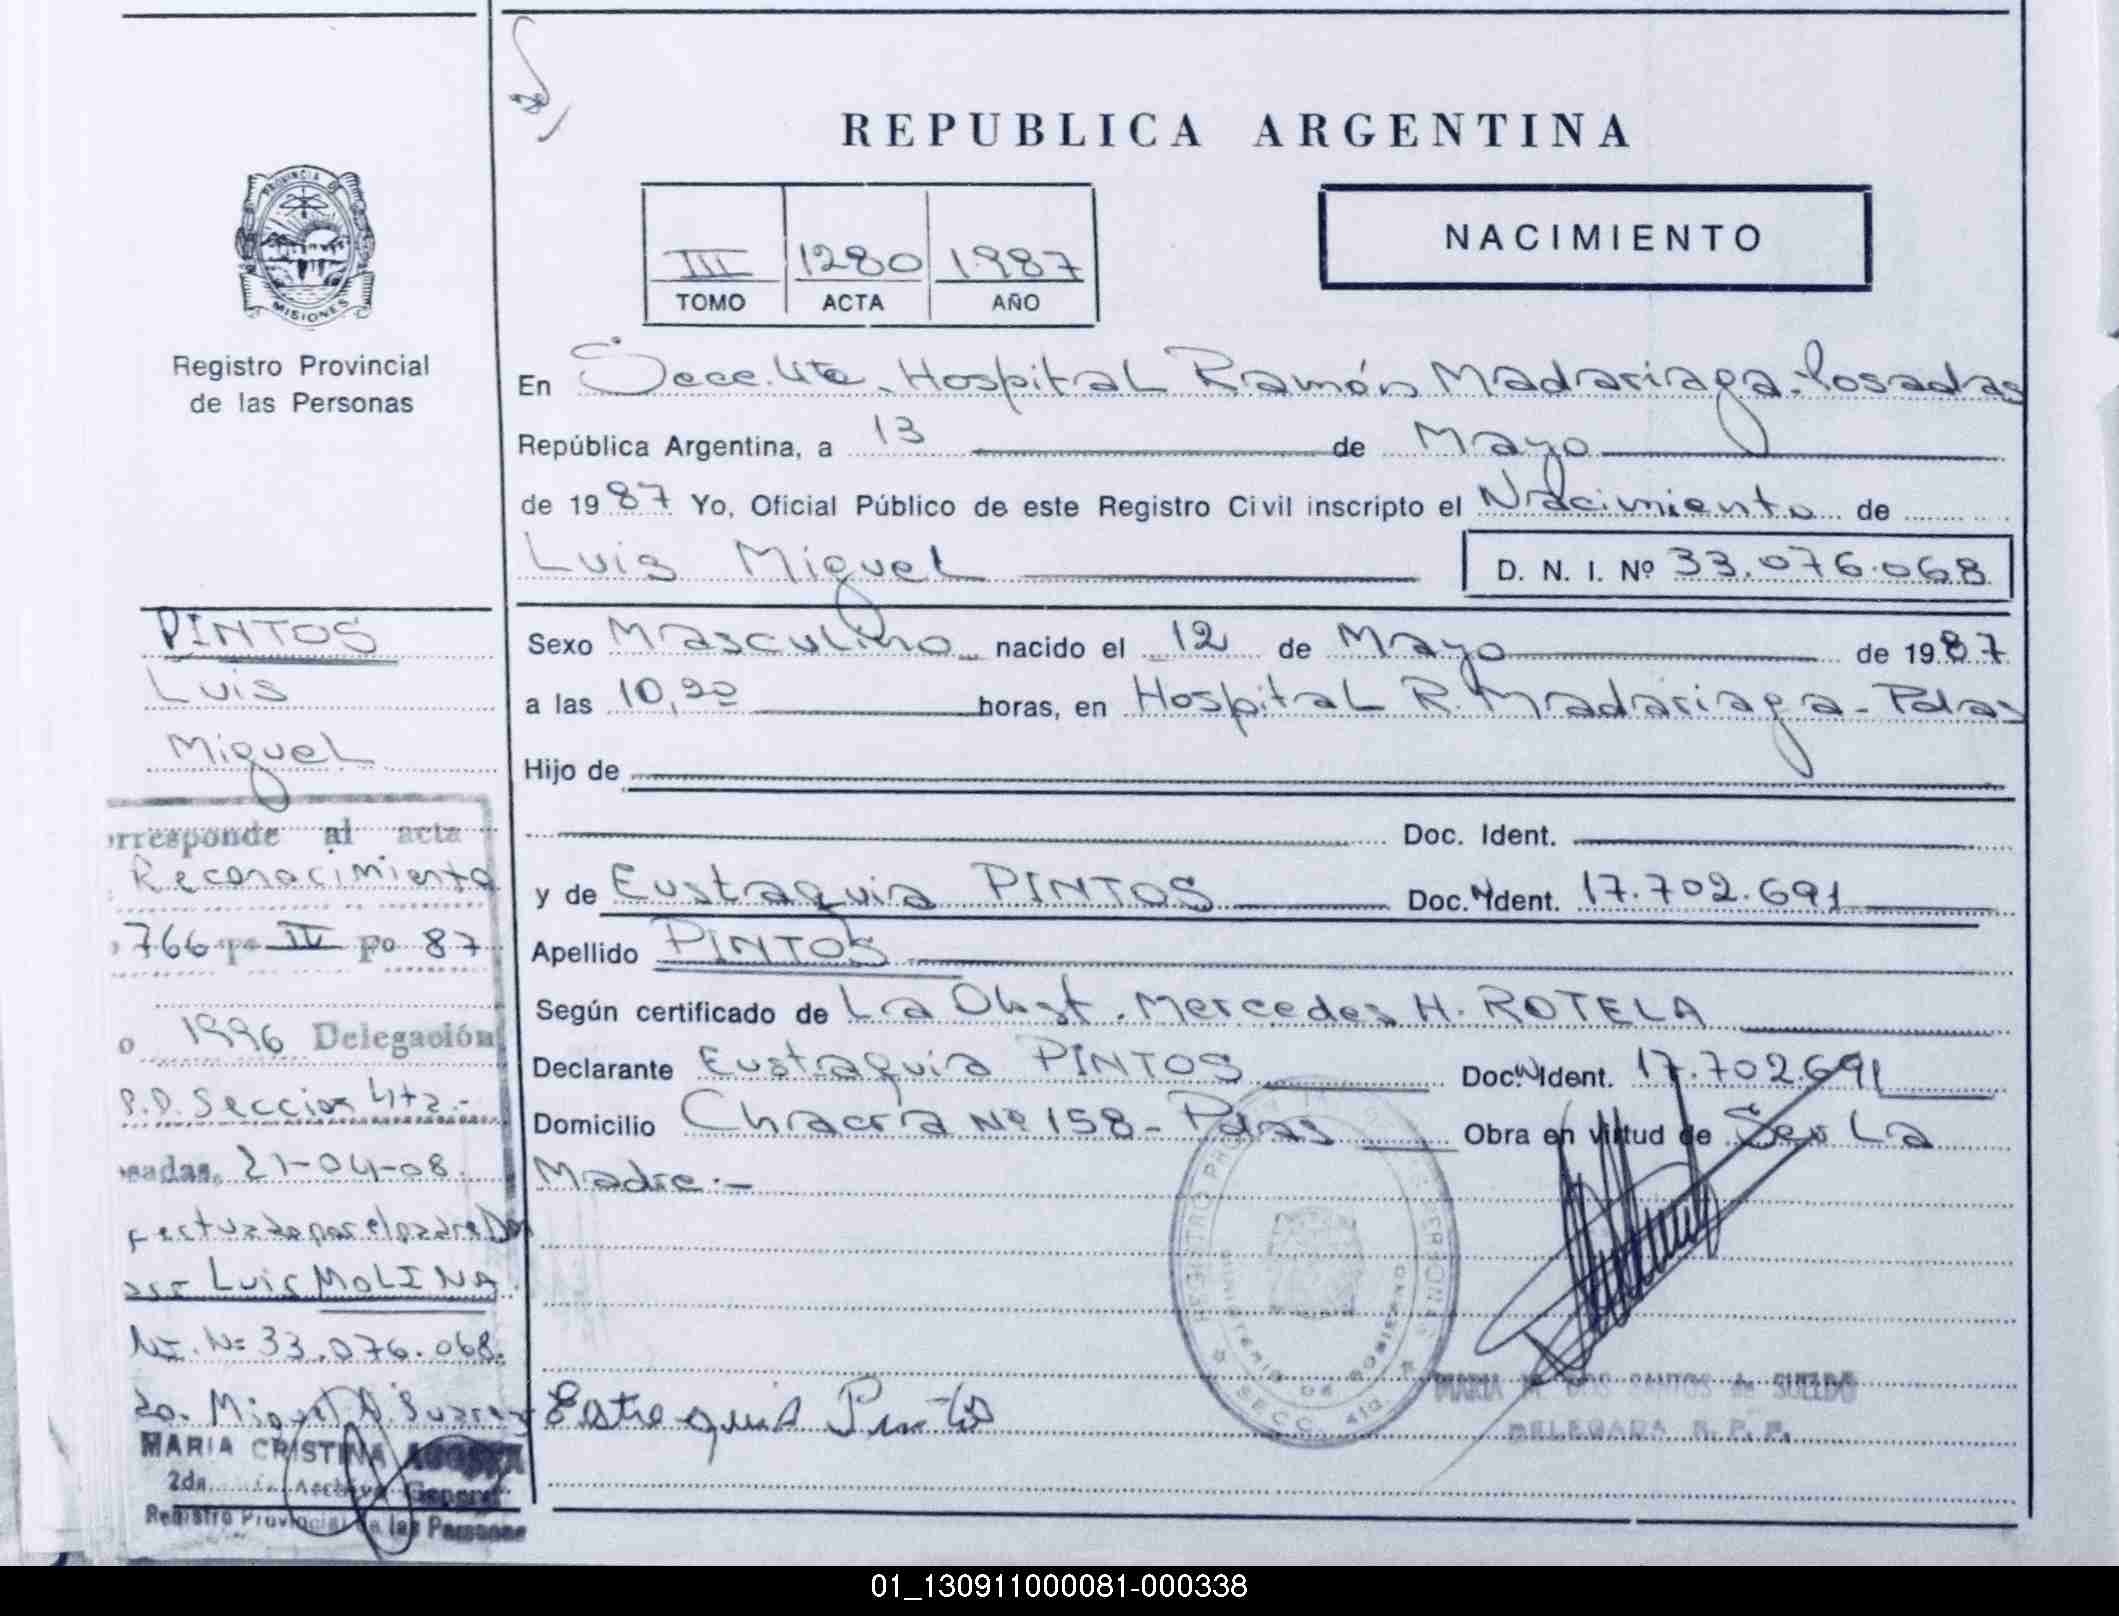 REPUBLICA ARGENTINA
NACIMIENTO
III 1280 1987
TOMO ACTA AÑO
PROVINCIA DE
MISIONES
Registro Provincial
de las Personas
En Secc. 4ta. Hospital Ramón Madariaga-Posadas
República Argentina, a 13 de Mayo
de 1987 Yo, Oficial Público de este Registro Civil inscripto el Nacimiento de
Luis Miguel D. N. I. Nº 33.076.068
Sexo Masculino nacido el 12 de Mayo de 1987
a las 10,20 horas, en Hospital R. Madariaga-Pdas
Hijo de
Doc. Ident.
y de Eustaquia PINTOS Doc. Ident. 17.702.691
Apellido PINTOS
Según certificado de La Obst. Mercedes H. ROTELA
Declarante Eustaquia PINTOS Doc. Ident. 17.702.691
Domicilio Chacra Nº 158- Pdas Obra en virtud de Ser La
Madre.-
Eustaquia Pintos
MARIA M. DOS SANTOS de SUELDO
DELEGADA R. P. P.
SECC. 4ta
PINTOS
Luis
Miguel
orresponde al acta
Reconocimiento
766 IV 87
o 1996 Delegación
R.P. Sección 4ta.-
sadas, 21-04-08.
fectuado por el padre Don
Luis MOLINA
N.I. Nº 33.076.068.
Do. Miguel A. Suarez
MARIA CRISTINA
2da Archivo General
Registro Provincial de las Personas
01_130911000081-000338